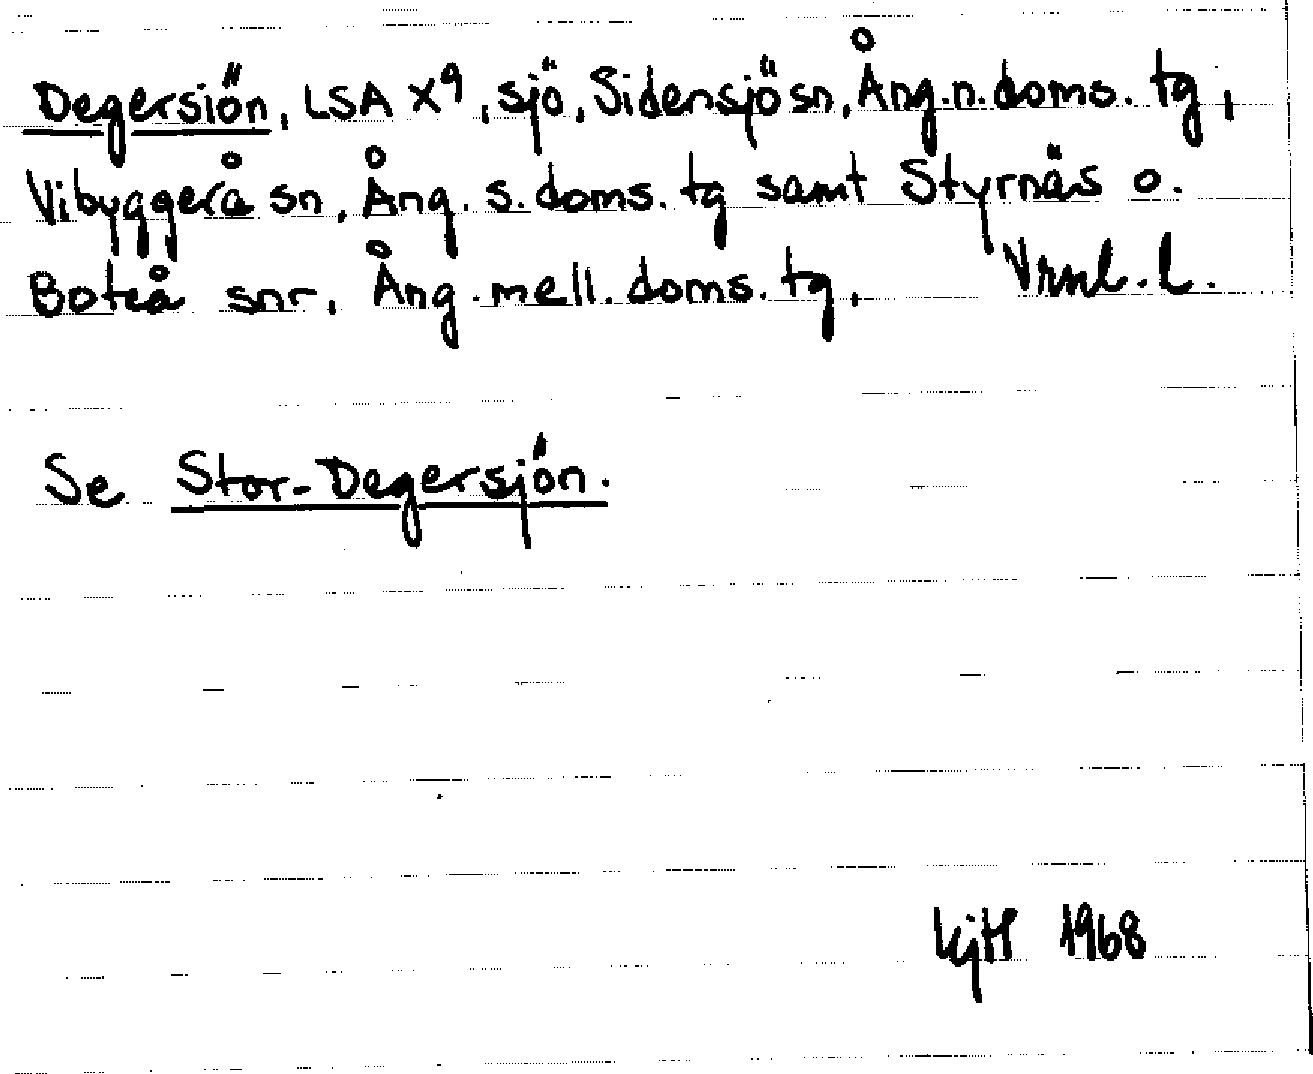 Degersiön, LSA X9, sjö, Sidensjö sn, Ång.n.doms. tg,
Vibyggerå sn, Ång. s.doms.tg samt Styrnäs o.
Boteå snr, Ång.mell.doms.tg, Vrml.l.
Se Stor-Degersjön.
1968